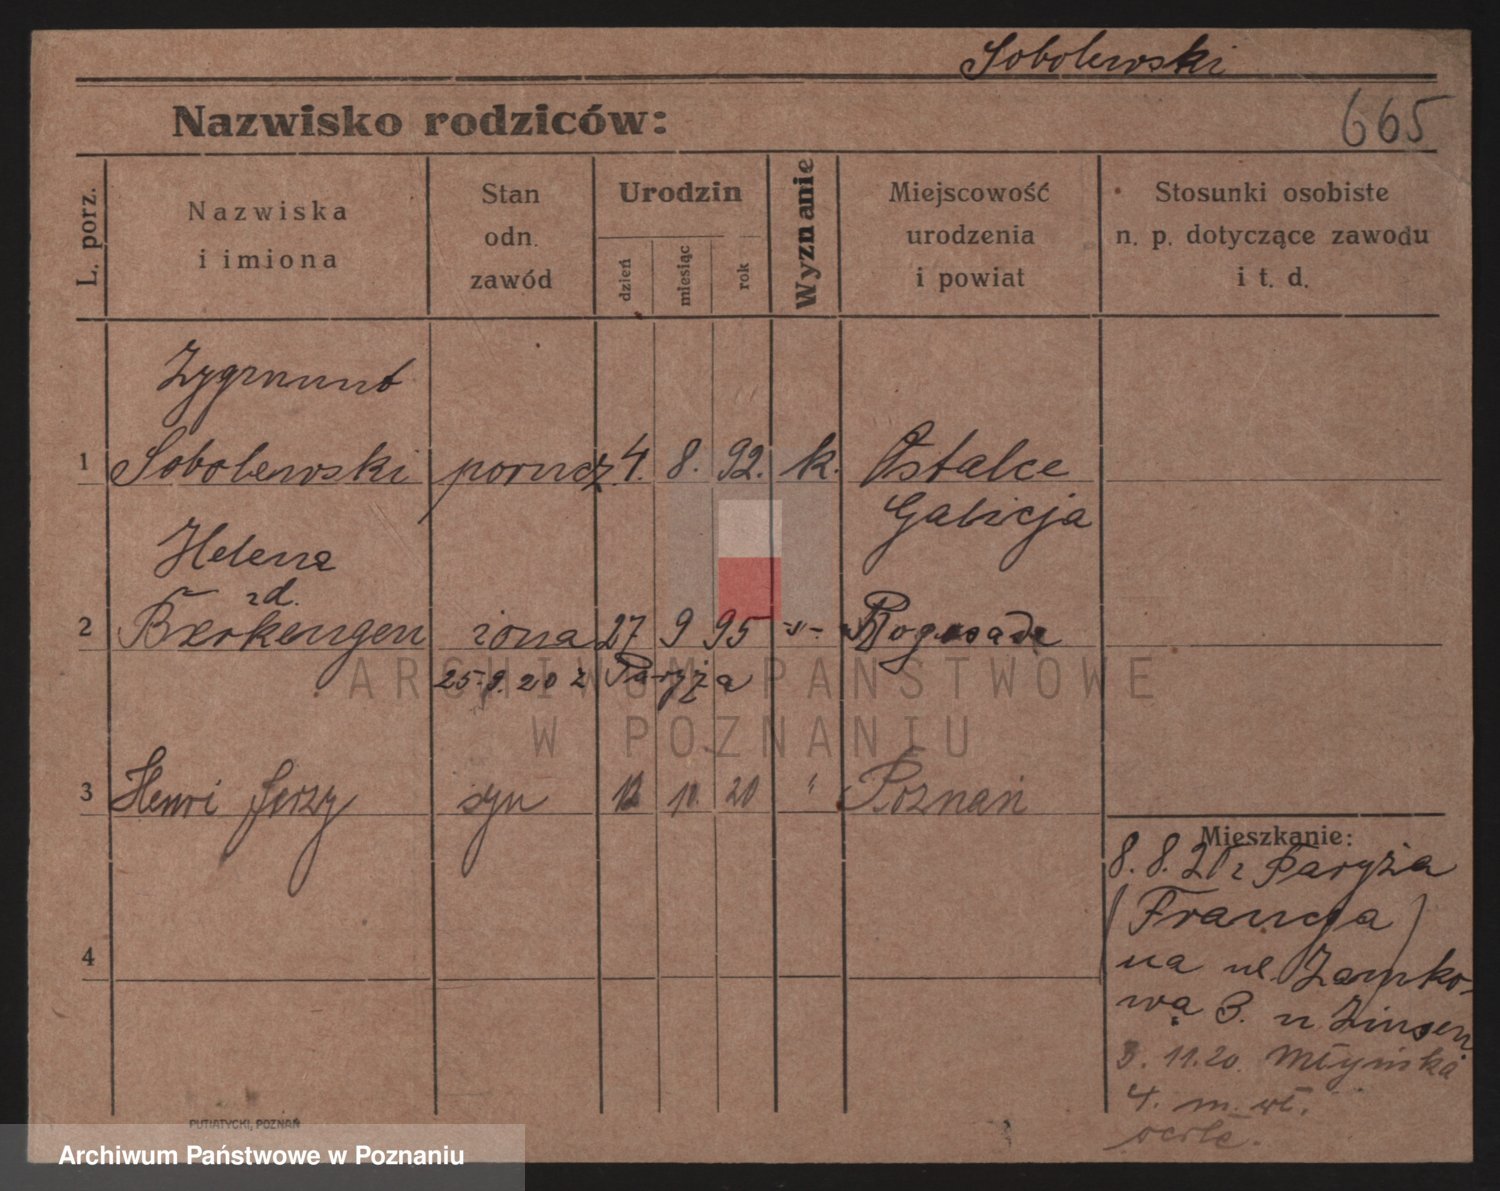 Sobolewski
Nazwisko rodziców:
665
L. porz.
Nazwiska
i imiona
Stan
odn.
zawód
Urodzin
dzień
miesiąc
rok
Wyznanie
Miejscowość
urodzenia
i powiat
Stosunki osobiste
n. p. dotyczące zawodu
i t. d.
Zygmunt
1 Sobolewski porucz. 4. 8. 92. k. Ostalce
Galicja
Helena
zd.
2 żona 27 9 95 -"-
25.9.20 z Paryża
3 Henri Jerzy syn 12 10. 20 " Poznań
Mieszkanie:
8. 8. 20 z Paryża
(Francja)
na ul. Zamko-
wą 3. u Zinsen
3. 11. 20. Młyńska
4. m. wł.
4
PUTIATYCKI, POZNAŃ
ARCHIWUM PAŃSTWOWE
W POZNANIU
Archiwum Państwowe w Poznaniu